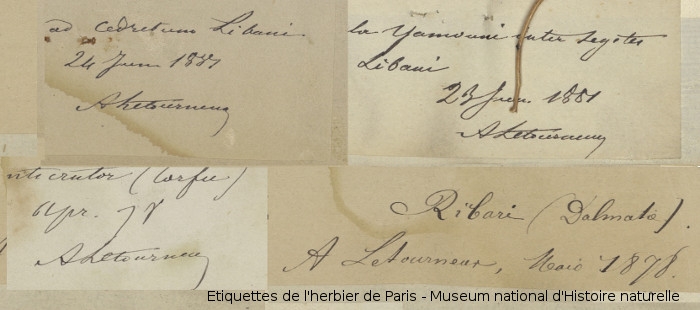 ad cedretum Libani
24 Juin 1881
A Letourneux
la Yamouni inter segetes
Libani
23 Juin 1881
A Letourneux
(Corfu)
Apr. 78
A Letourneux
Ribari (Dalmata).
A Letourneux, Maio 1878.
Etiquettes de l'herbier de Paris - Museum national d'Histoire naturelle